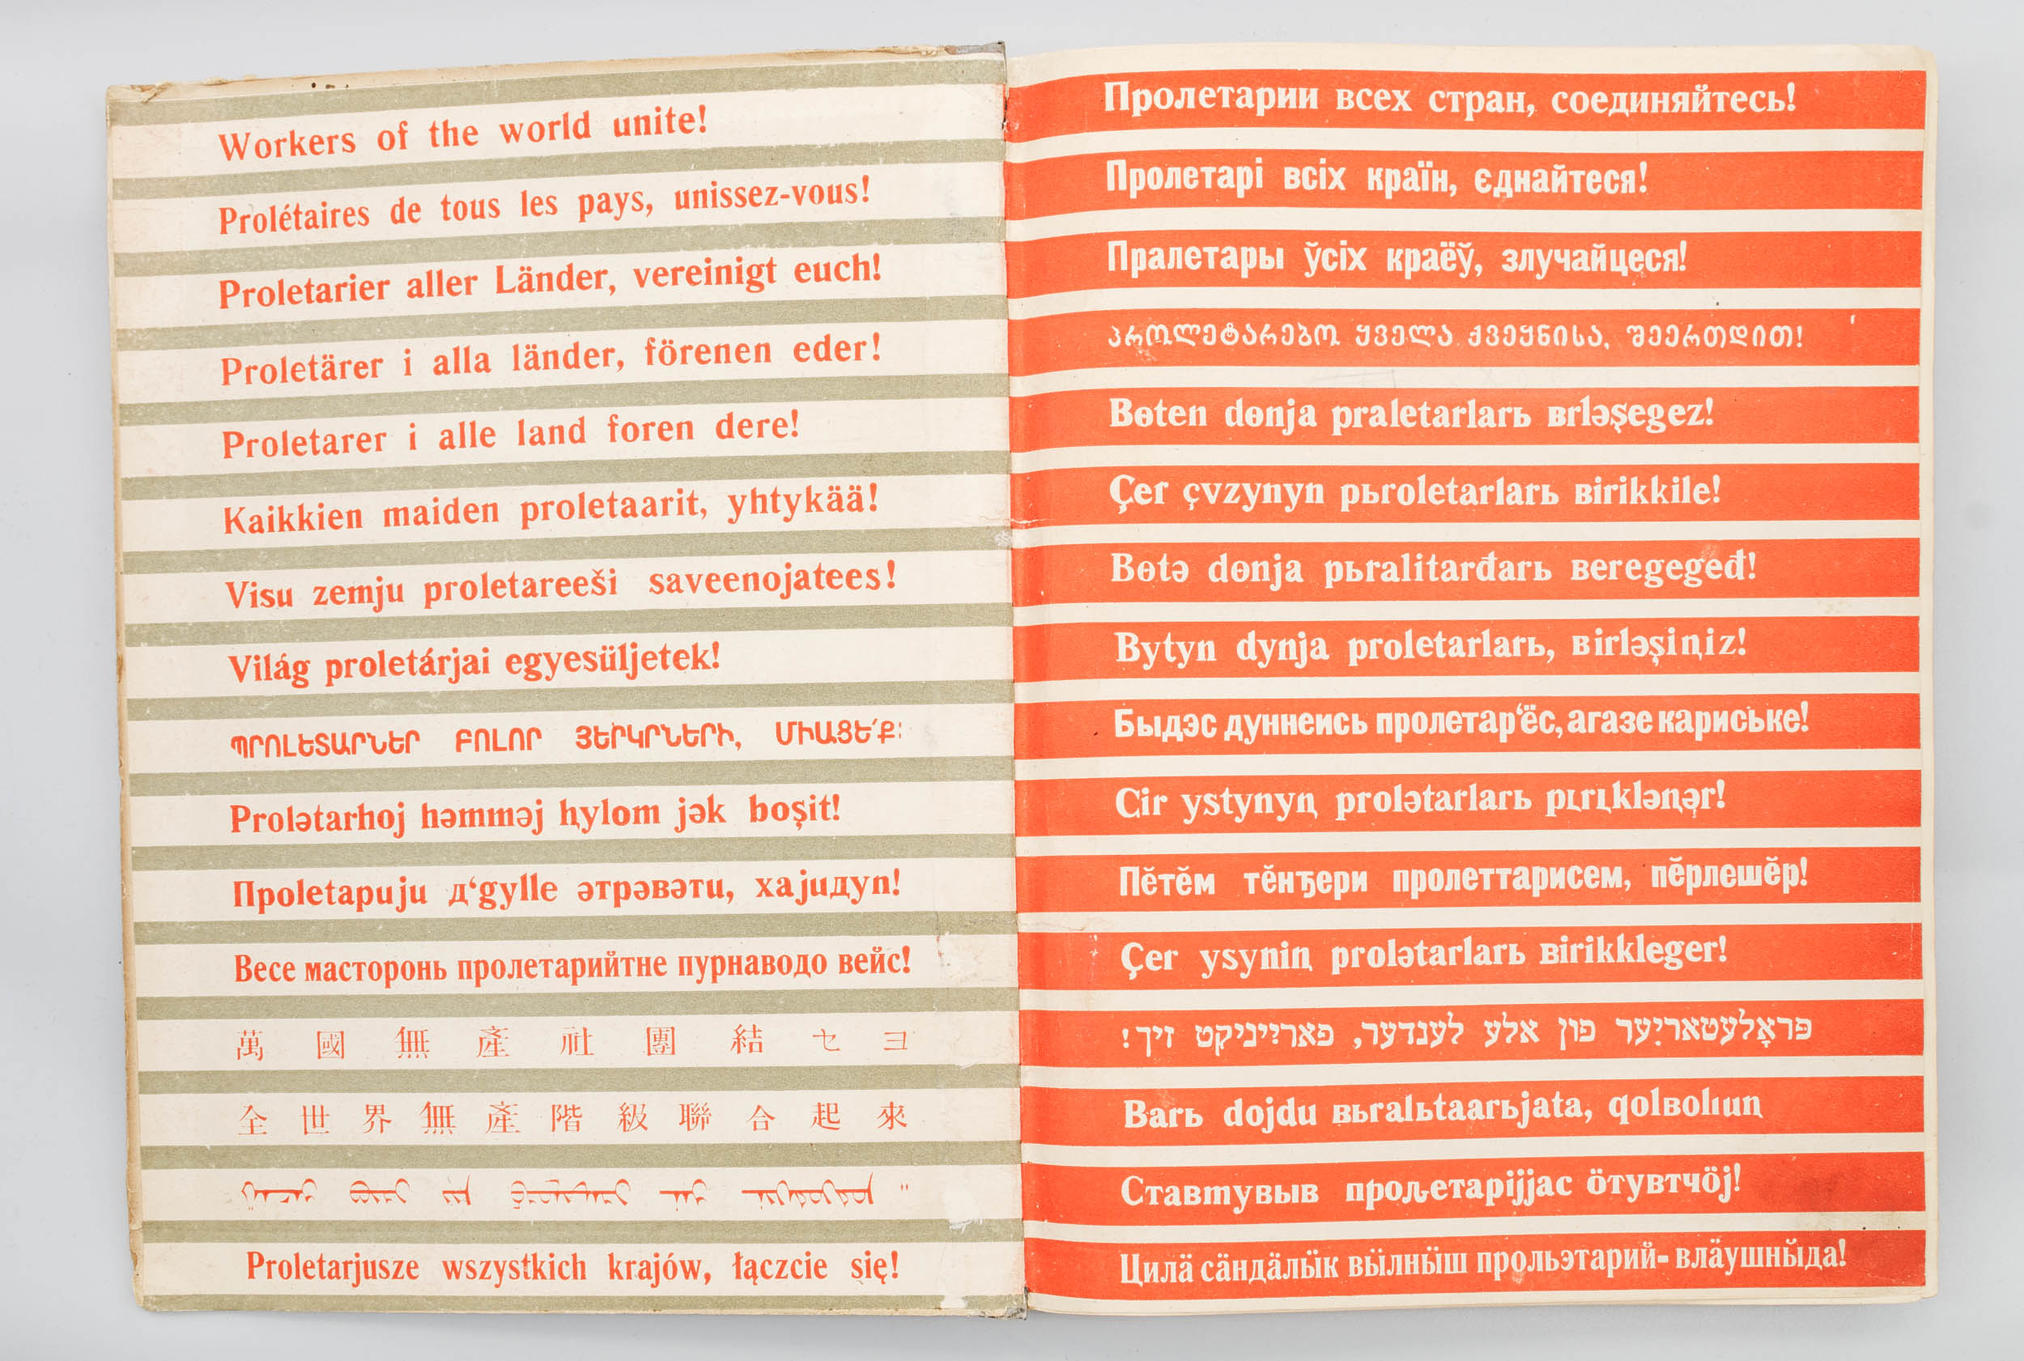 Workers of the world unite!
Prolétaires de tous les pays, unissez-vous!
Proletarier aller Länder, vereinigt euch!
Proletärer i alla länder, förenen eder!
Proletarer i alle land foren dere!
Kaikkien maiden proletaarit, yhtykää!
Visu zemju proletareeši saveenojatees!
Világ proletárjai egyesüljetek!
ՊՐՈԼԵՏԱՐՆԵՐ ԲՈԼՈՐ ՅԵՐԿՐՆԵՐԻ, ՄԻԱՑԵ՛Ք։
Prolətarhoj həmməj ⱨylom jək boşit!
Весе масторонь пролетарийтне пурнаводо вейс!
萬國無產社團結セヨ
全世界無產階級聯合起來
Proletarjusze wszystkich krajów, łączcie się!
Пролетарии всех стран, соединяйтесь!
Пролетарі всіх країн, єднайтеся!
Пралетары ўсіх краёў, злучайцеся!
ᲞᲠᲝᲚᲔᲢᲐᲠᲔᲑᲝ ᲧᲕᲔᲚᲐ ᲥᲕᲔᲧᲜᲘᲡᲐ, ᲨᲔᲔᲠᲗᲓᲘᲗ!
Bɵten dɵnja praletarlarь ʙrləşegez!
Çer çvzynyn pьroletarlarь ʙirikkile!
Bɵtə dɵnja pьralitarđarь ʙeregegeđ!
Bytyn dynja proletarlarь, ʙirləşiꞑiz!
Быдэс дуннеись пролетар‘ёс, агазе кариське!
Cir ystynyꞑ prolətarlarь pɩrɩkləꞑər!
Пӗтӗм тӗнҕери пролеттарисем, пӗрлешӗр!
Çer ysyniꞑ prolətarlarь ʙirikkleger!
פּראָלעטאַריִער פון אלע לענדער, פאַרײניקט זיך!
Barь dojdu ʙьralьtaarьjata, qolʙohuꞑ
Ставтувыв прољетаріјјас öтувтчöј!
Цилӓ сӓндӓлӹк вӹлнӹш прольэтарий-влӓушнӹда!